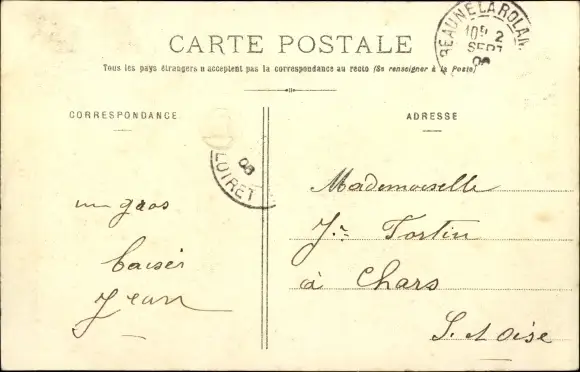 CARTE POSTALE
Tous les pays étrangers n'acceptent pas la correspondance au recto (Se renseigner à la Poste)
BEAUNE LA ROLAN
10 2
SEPT
CORRESPONDANCE
ADRESSE
08
LOIRET
un gros
baiser
Jean
Mademoiselle
Tortin
à Chars
S. et Oise